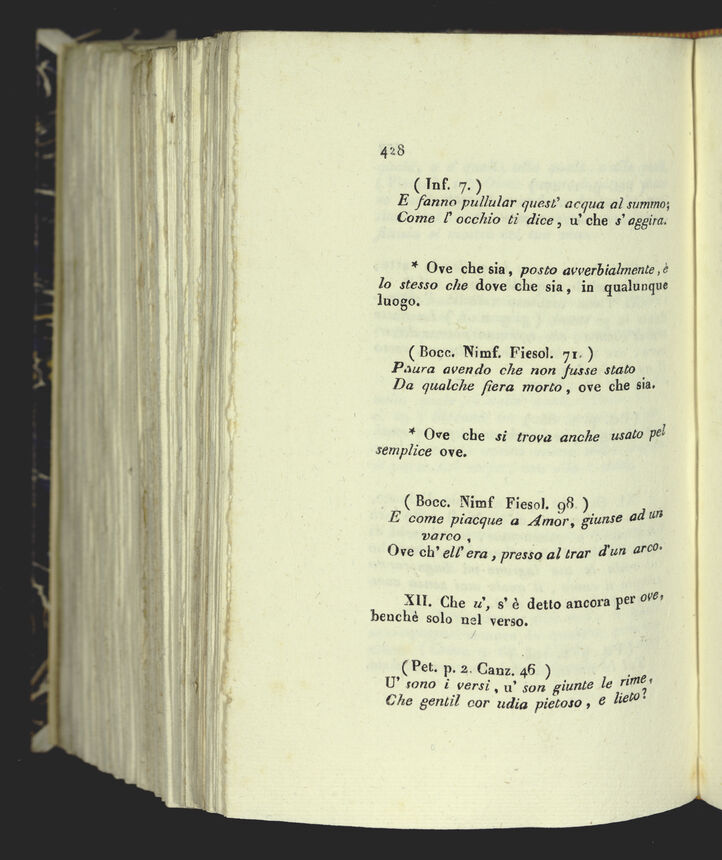 428
( Inf. 7. )
E fanno pullular quest' acqua al summo;
Come l' occhio ti dice, u' che s' aggira.
* Ove che sia, posto avverbialmente, è
lo stesso che dove che sia, in qualunque
luogo.
( Bocc. Nimf. Fiesol. 71. )
Paura avendo che non fusse stato
Da qualche fiera morto, ove che sia.
* Ove che si trova anche usato pel
semplice ove.
( Bocc. Nimf Fiesol. 98. )
E come piacque a Amor, giunse ad un
varco,
Ove ch' ell' era, presso al trar d'un arco.
XII. Che u', s' è detto ancora per ove,
benchè solo nel verso.
( Pet. p. 2. Canz. 46 )
U' sono i versi, u' son giunte le rime,
Che gentil cor udia pietoso, e lieto?